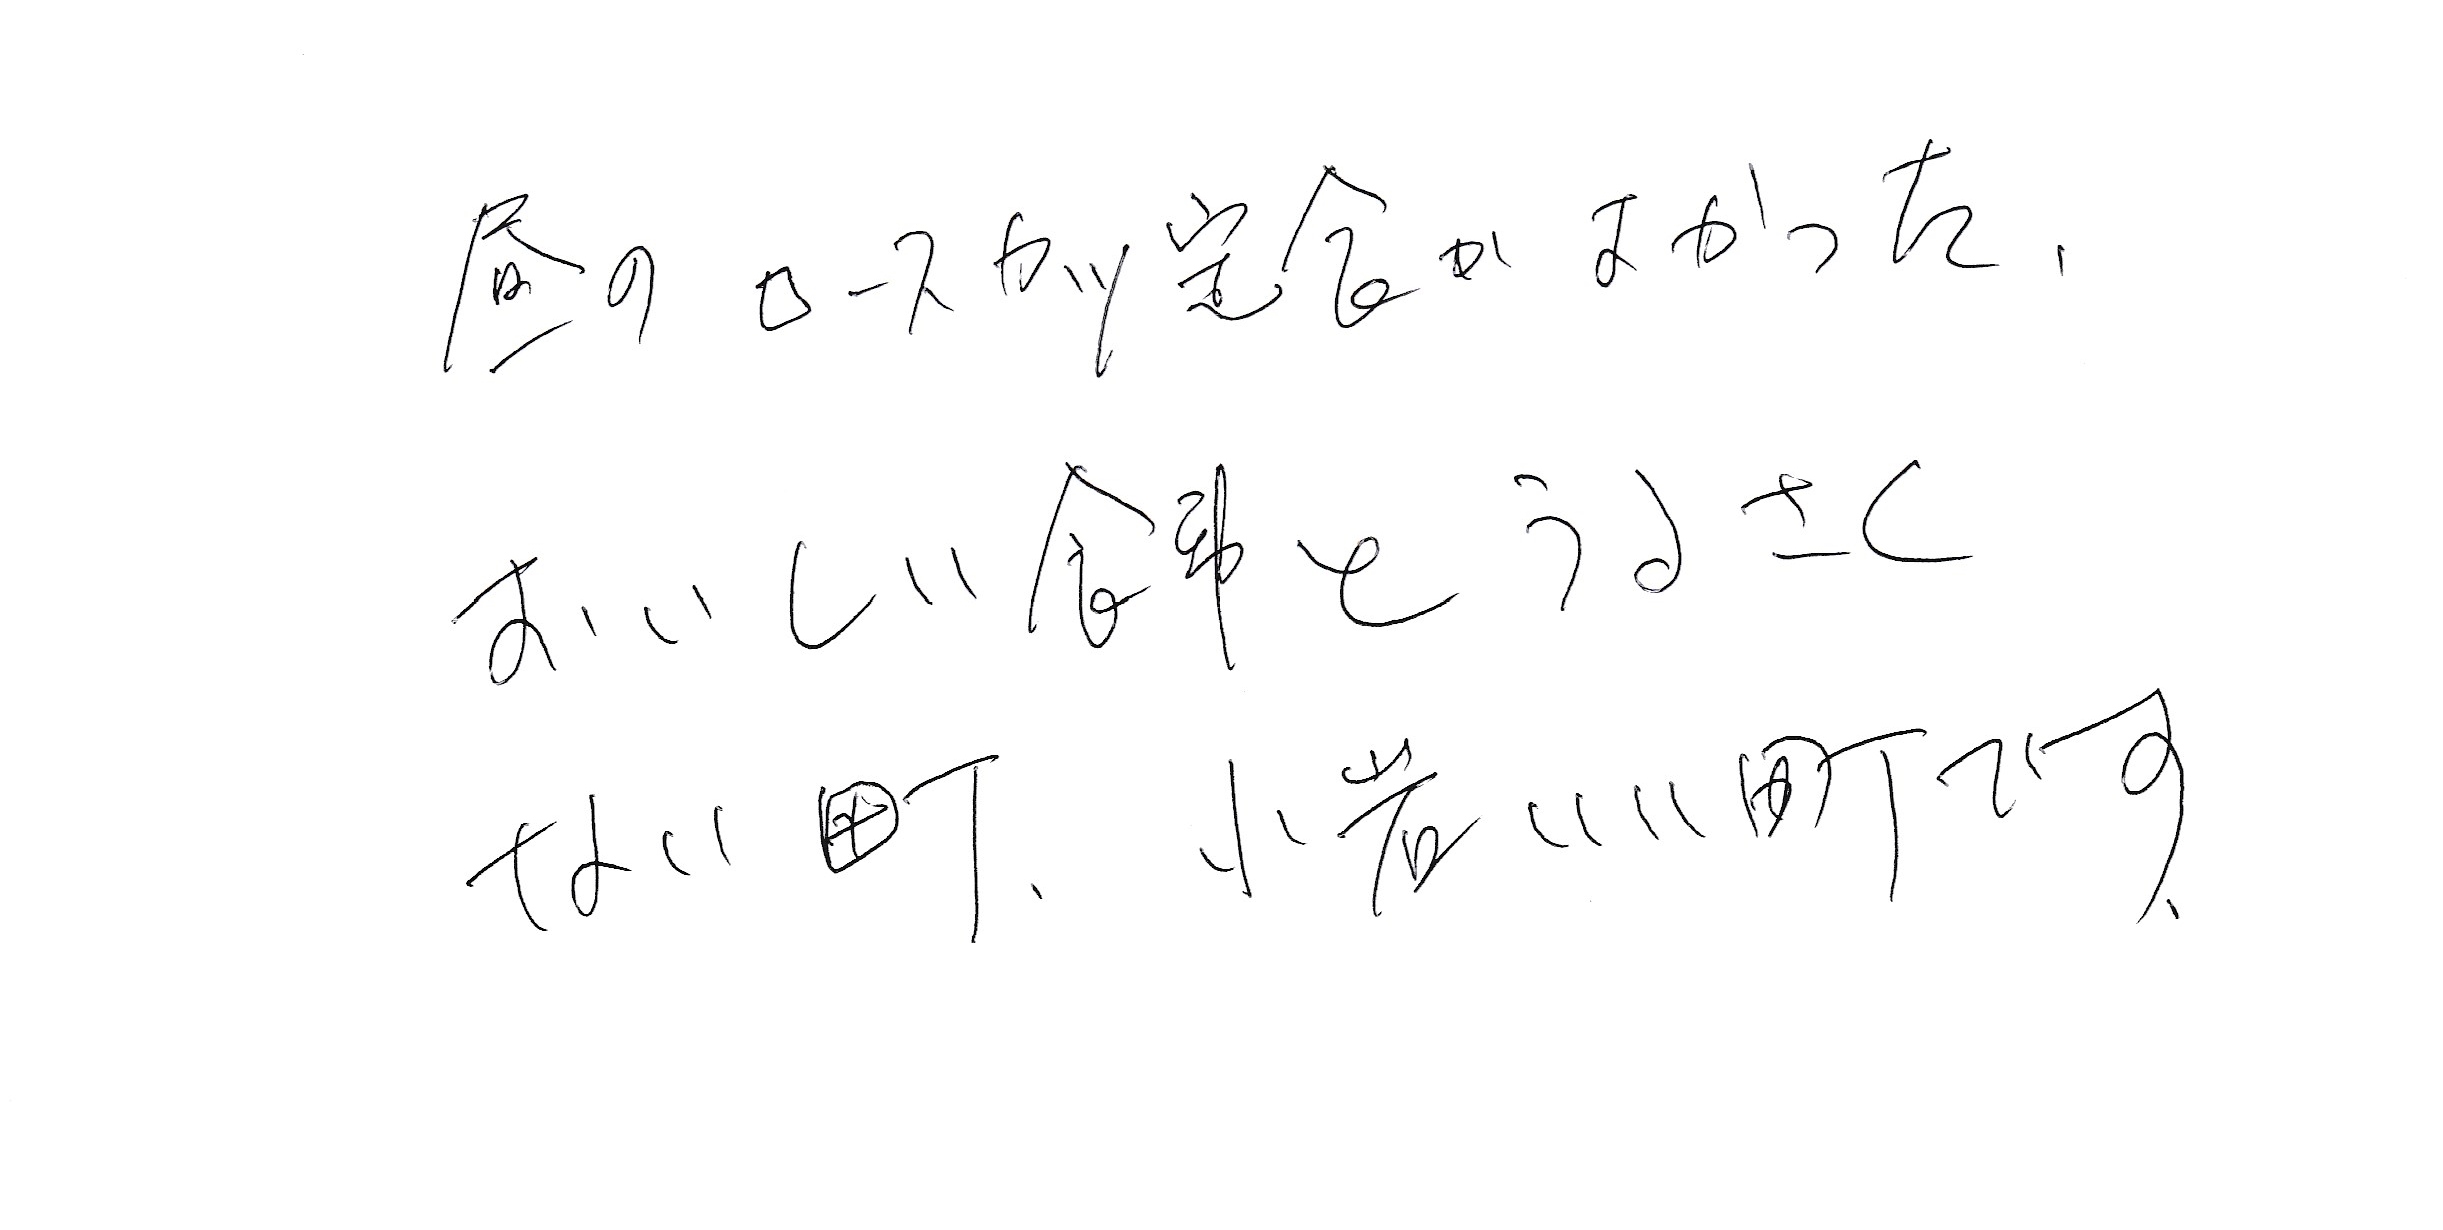 昼のロースカツ定食がよかった、
おいしい食事とうるさく
ない町、小岩いい町です、